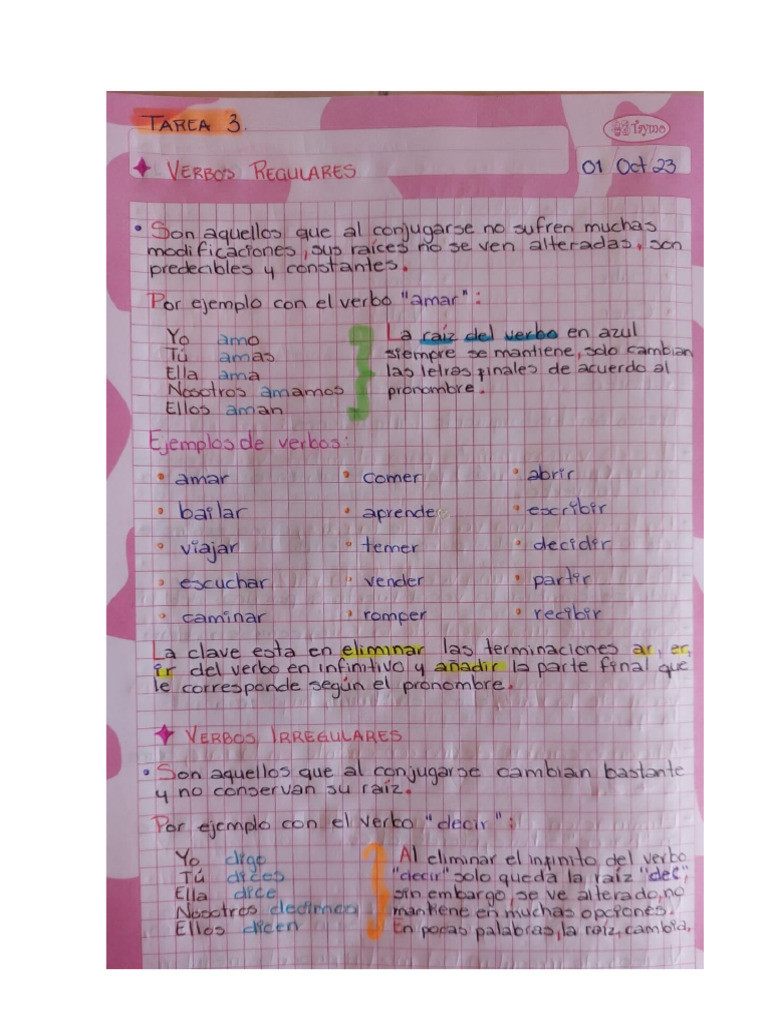 TAREA 3.
Taymo
VERBOS REGULARES
01 Oct 23
• Son aquellos que al conjugarse no sufren muchas
modificaciones, sus raíces no se ven alteradas. son
predecibles y constantes.
Por ejemplo con el verbo "amar":
Yo amo
Tú amas
Ella ama
Nosotros amamos
Ellos aman
La raíz del verbo en azul
siempre se mantiene, solo cambian
las letras finales de acuerdo al
pronombre.
Ejemplos de verbos:
• amar • comer • abrir
• bailar • aprender • escribir
• viajar • temer • decidir
• escuchar • vender • partir
• caminar • romper • recibir
La clave esta en eliminar las terminaciones ar, er,
ir del verbo en infinitivo y añadir la parte final que
le corresponde según el pronombre.
VERBOS IRREGULARES
• Son aquellos que al conjugarse cambian bastante
y no conservan su raíz.
Por ejemplo con el verbo "decir":
Yo digo
Tú dices
Ella dice
Nosotros decimos
Ellos dicen
Al eliminar el infinito del verbo
"decir" solo queda la raíz "dec",
sin embargo, se ve alterado, no
mantiene en muchas opciones.
En pocas palabras, la raíz, cambia.